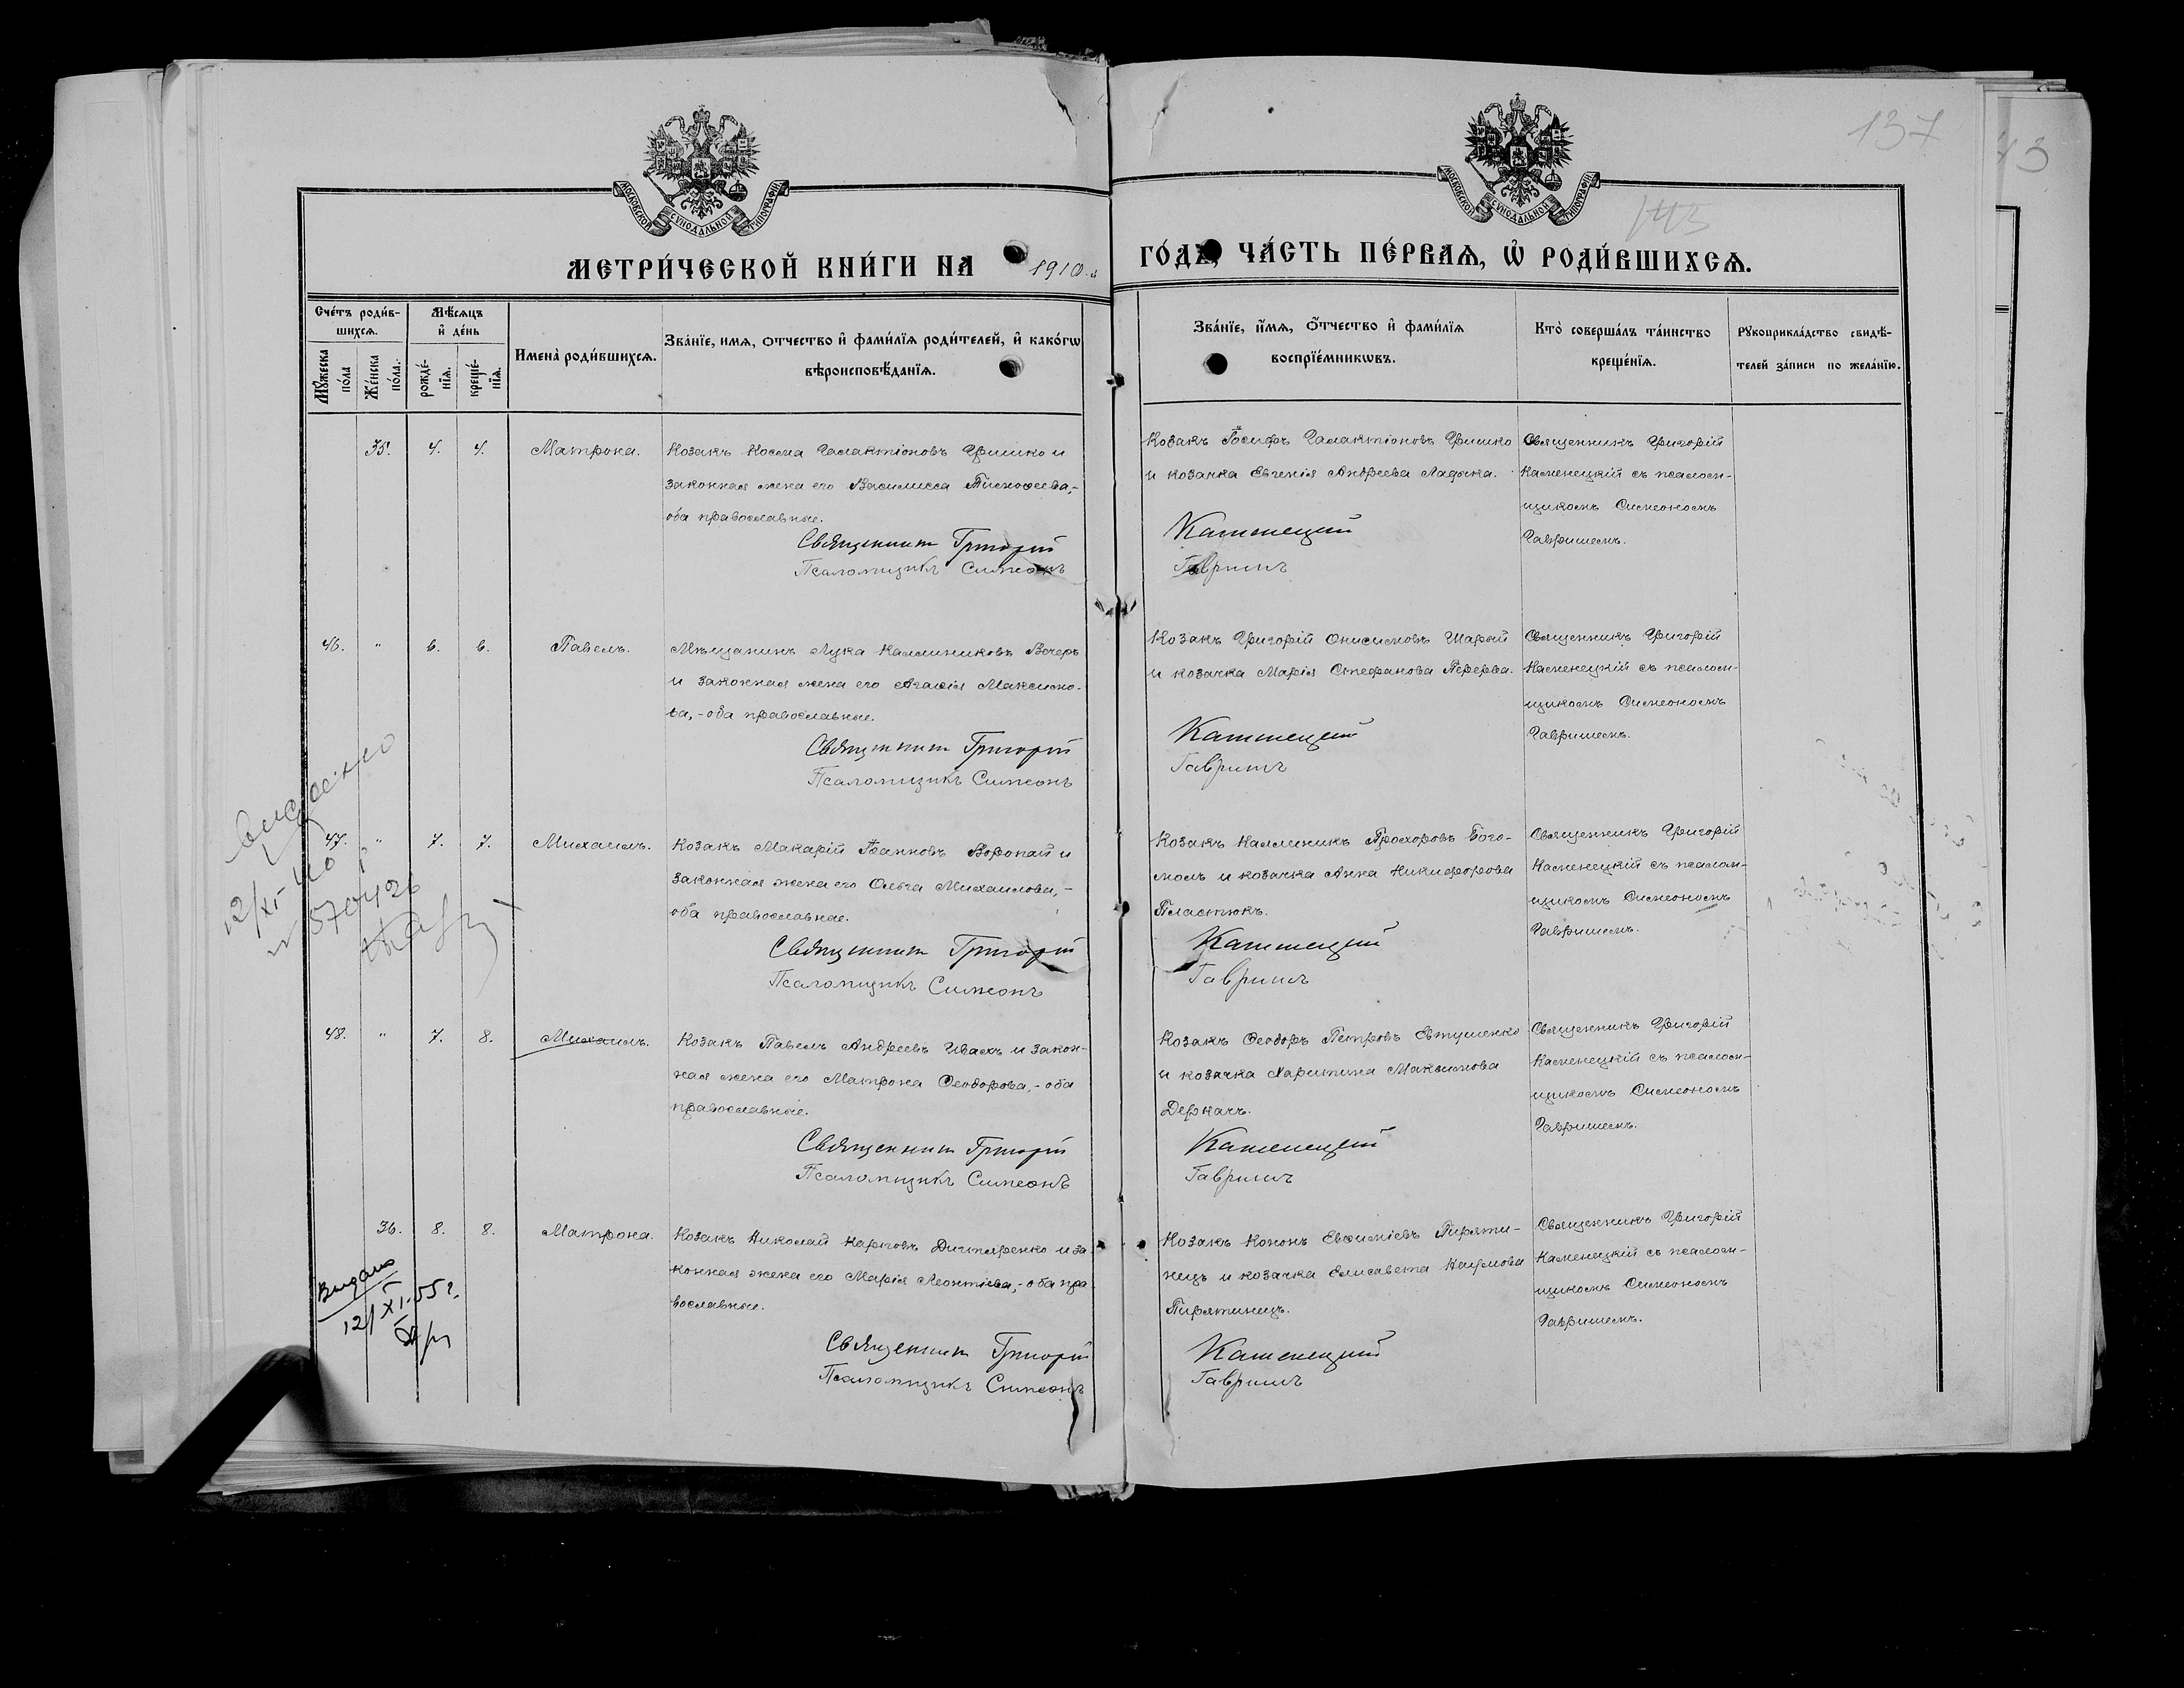 137
43
143
МОСКОВСКОЙ СѴНОДАЛЬНОЙ ТИПОГРАФІИ
МОСКОВСКОЙ СѴНОДАЛЬНОЙ ТИПОГРАФІИ
МЕТРИ́ЧЕСКОЙ КНИ́ГИ НА 1910 ГО́ДЪ, ЧА́СТЬ ПЕ́РВАѦ, Ѡ҆ РОДИ́ВШИХСѦ.
Сче́тъ роди́в-
шихсѧ.
Мꙋ́жеска по́ла
Же́нска по́ла.
Мѣ́сѧцъ
и҆ де́нь
рожде́-
нїѧ.
креще́-
нїѧ.
Имена̀ роди́вшихсѧ.
Зва́нїе, имѧ, ѻтчество и҆ фами́лїѧ роди́телей, и҆ како́гѡ
вѣроисповѣ́данїѧ.
Зва́нїе, и҆́мѧ, ѻ҆́тчество и҆ фами́лїѧ
воспрїе́мникѡвъ.
Кто̀ соверша́лъ та́инство
креще́нїѧ.
Рꙋкоприкла́дство свидѣ́-
телей за́писи по жела́нїю.
35. 4. 4. Матрона.
Козакъ Косма Галактіоновъ Гришко и
законная жена его Василисса Тимоѳеева,-
оба православные.
Священникъ Григорій
Псаломщикъ Симеонъ
Козакъ Іосифъ Галактіоновъ Гришко
и козачка Евгенія Андреева Ладыка.
Каменецкій
Гавришъ
Священникъ Григорій
Каменецкій съ псалом-
щикомъ Симеономъ
Гавришемъ.
46. " 6. 6. Павелъ.
Мѣщанинъ Лука Каллиниковъ Вечеръ
и законная жена его Агаѳія Максимо-
ва,-оба православные.
Священникъ Григорій
Псаломщикъ Симеонъ
Козакъ Григорій Онисимовъ Шарый
и козачка Марія Стефанова Перерва.
Каменецкій
Гавришъ
Священникъ Григорій
Каменецкій съ псалом-
щикомъ Симеономъ
Гавришемъ.
47. " 7. 7. Михаилъ.
Козакъ Макарій Іоанновъ Воропай и
законная жена его Ольга Михаилова,-
оба православные.
Священникъ Григорій
Псаломщикъ Симеонъ
Козакъ Каллиникъ Прохоровъ Бого-
молъ и козачка Анна Никифорова
Пластюкъ.
Каменецкій
Гавришъ
Священникъ Григорій
Каменецкій съ псалом-
щикомъ Симеономъ
Гавришемъ.
12/XI
570426
48. " 7. 8. Михаилъ.
Козакъ Павелъ Андреевъ Ивахъ и закон-
ная жена его Матрона Ѳеодорова,-оба
православные.
Священникъ Григорій
Псаломщикъ Симеонъ
Козакъ Ѳеодоръ Петровъ Евтушенко
и козачка Харитина Максимова
Деркачъ.
Каменецкій
Гавришъ
Священникъ Григорій
Каменецкій съ псалом-
щикомъ Симеономъ
Гавришемъ.
36. 8. 8. Матрона.
Козакъ Николай Карповъ Дигтяренко и за-
конная жена его Марія Леонтіева,-оба пра-
вославные.
Священникъ Григорій
Псаломщикъ Симеонъ
Козакъ Кононъ Евѳиміевъ Пиряти-
нецъ и козачка Елисавета Наумова
Пирятинецъ.
Каменецкій
Гавришъ
Священникъ Григорій
Каменецкій съ псалом-
щикомъ Симеономъ
Гавришемъ.
Видано
12/XI.55г.